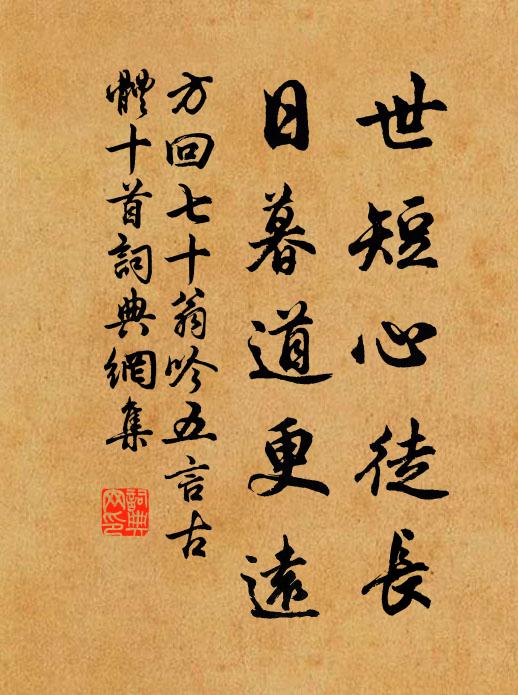 世短心徒長
日暮道更遠
方回七十翁吟五言古
體十首詞典網集
詞典
网印